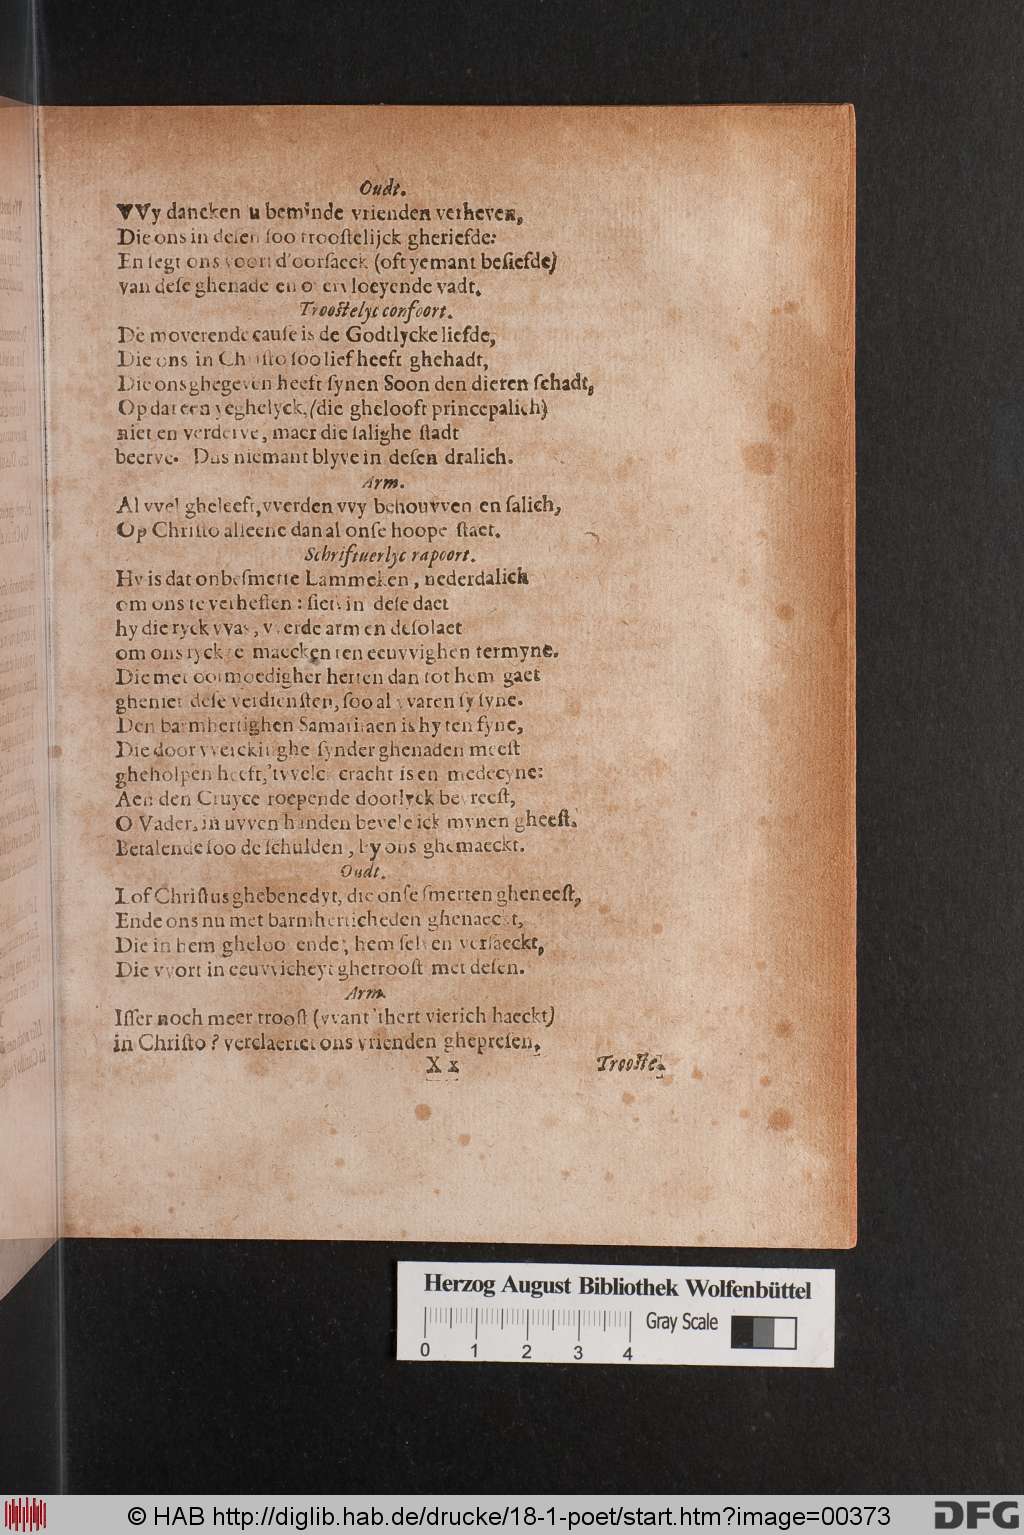 Oudt.
VVy dancken u beminde vrienden verheven,
Die ons in desen soo troostelijck gheriefde:
En segt ons voort d'oorsaeck (oft yemant besiefde)
van dese ghenade en overvloeyende vadt.
Troostelyc confoort.
De moverende cause is de Godtlycke liefde,
Die ons in Christo soo lief heeft ghehadt,
Die ons ghegeven heeft synen Soon den dieren schadt,
Op dat een yeghelyck, (die ghelooft princepalich)
niet en verderve, maer die salighe stadt
beerve. Dus niemant blyve in desen dralich.
Arm.
Al vvel gheleeft, vverden vvy behouvven en salich,
Op Christo alleene dan al onse hoope staet.
Schriftuerlyc rapoort.
Hy is dat onbesmette Lammeken, nederdalich
om ons te verheffen: siet in dese daet
hy die ryck vvas, vverde arm en desolaet
om ons ryck te maecken ten eeuvvighen termyne.
Die met ootmoedigher herten dan tot hem gaet
gheniet dese verdiensten, soo al vvaren sy syne.
Den barmhertighen Samaritaen is hy ten fyne,
Die door vverckinghe synder ghenaden meest
gheholpen heeft, 'tvvelc cracht is en medecyne:
Aen den Cruyce roepende doorlyck bevreest,
O Vader, in uvven handen bevele ick mynen gheest.
Betalende soo de schulden, by ons ghemaeckt.
Oudt.
Lof Christus ghebenedyt, die onse smerten gheneest,
Ende ons nu met barmherticheden ghenaeckt,
Die in hem gheloovende, hem selven versaeckt,
Die vvort in eeuvvicheyt ghetroost met desen.
Arm.
Isser noch meer troost (vvant 'thert vierich haeckt)
in Christo? verclaertet ons vrienden ghepresen.
X x
Trooste.
Herzog August Bibliothek Wolfenbüttel
Gray Scale
0 1 2 3 4
© HAB http://diglib.hab.de/drucke/18-1-poet/start.htm?image=00373
DFG